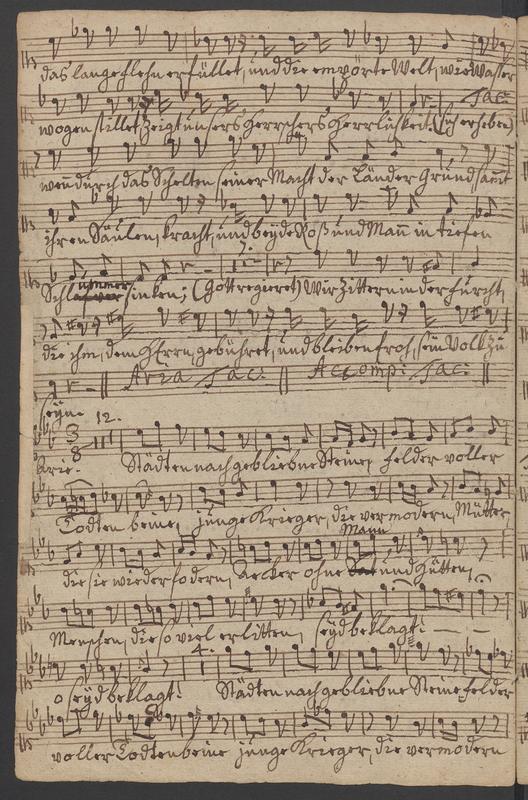 das lange Flehn erfüllet, und die empörte Welt, wie Wasser
Tac:
wogen stillet zeigt unsers Herrschers Herrlichkeit. (sich erheben)
wenn durch das Schelten seiner Macht der Länder Grund, samt
ihren Säulen, kracht, und beyde Roß und Mañ in tiefen
7.
Schlummer sinken; (Gott regieret) Wir zittern in der Furcht,
die ihm, dem Hfrrn, gebühret, und bleiben froh, sein Volk zu
Aria Tac: Accomp: Tac:
seyn.
12.
Arie. Städten nachgebliebne Steine, Felder voller
Todten beine, junge Krieger, die vermodern, Mütter,
Mann
die sie wiederfodern, Aecker ohne und Hütten,
Menschen, die so viel erlitten, seyd beklagt!
4.
o seyd beklagt! Städten nachgebliebne Steine Felder
voller Todtenbeine junge Krieger, die vermodern